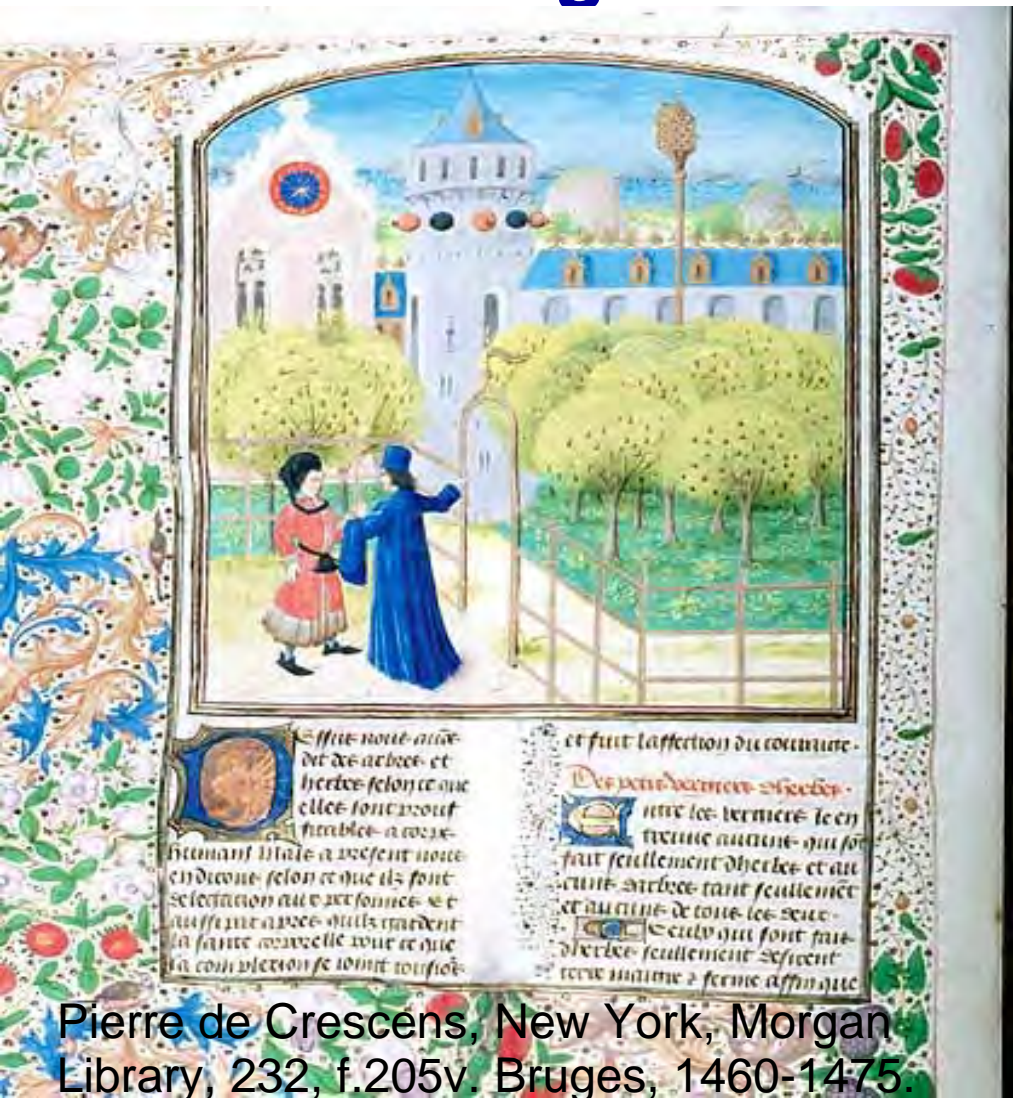 Dessus nous auõs
dit des arbres et
herbes selon ce que
elles sont prouf
fitables a corps
humains Mais a present nous
en dirons selon ce que ilz font
delectation aux personnes Et
aussi par apres quilz gardent
la sante corporelle pour ce que
la complexion se toursiors
et suit laffection du couraige.
Des petis vergiers dherbes.
Entre les vergiers len en
treuue aucuns qui sõt
fait seullement dherbes et au
cuns darbres tant seullemẽt
et aucuns de tous les deux.
Ceulx qui sont fais
dherbes seullement desirent
terre maigre & ferme affin que
Pierre de Crescens, New York, Morgan
Library, 232, f.205v. Bruges, 1460-1475.